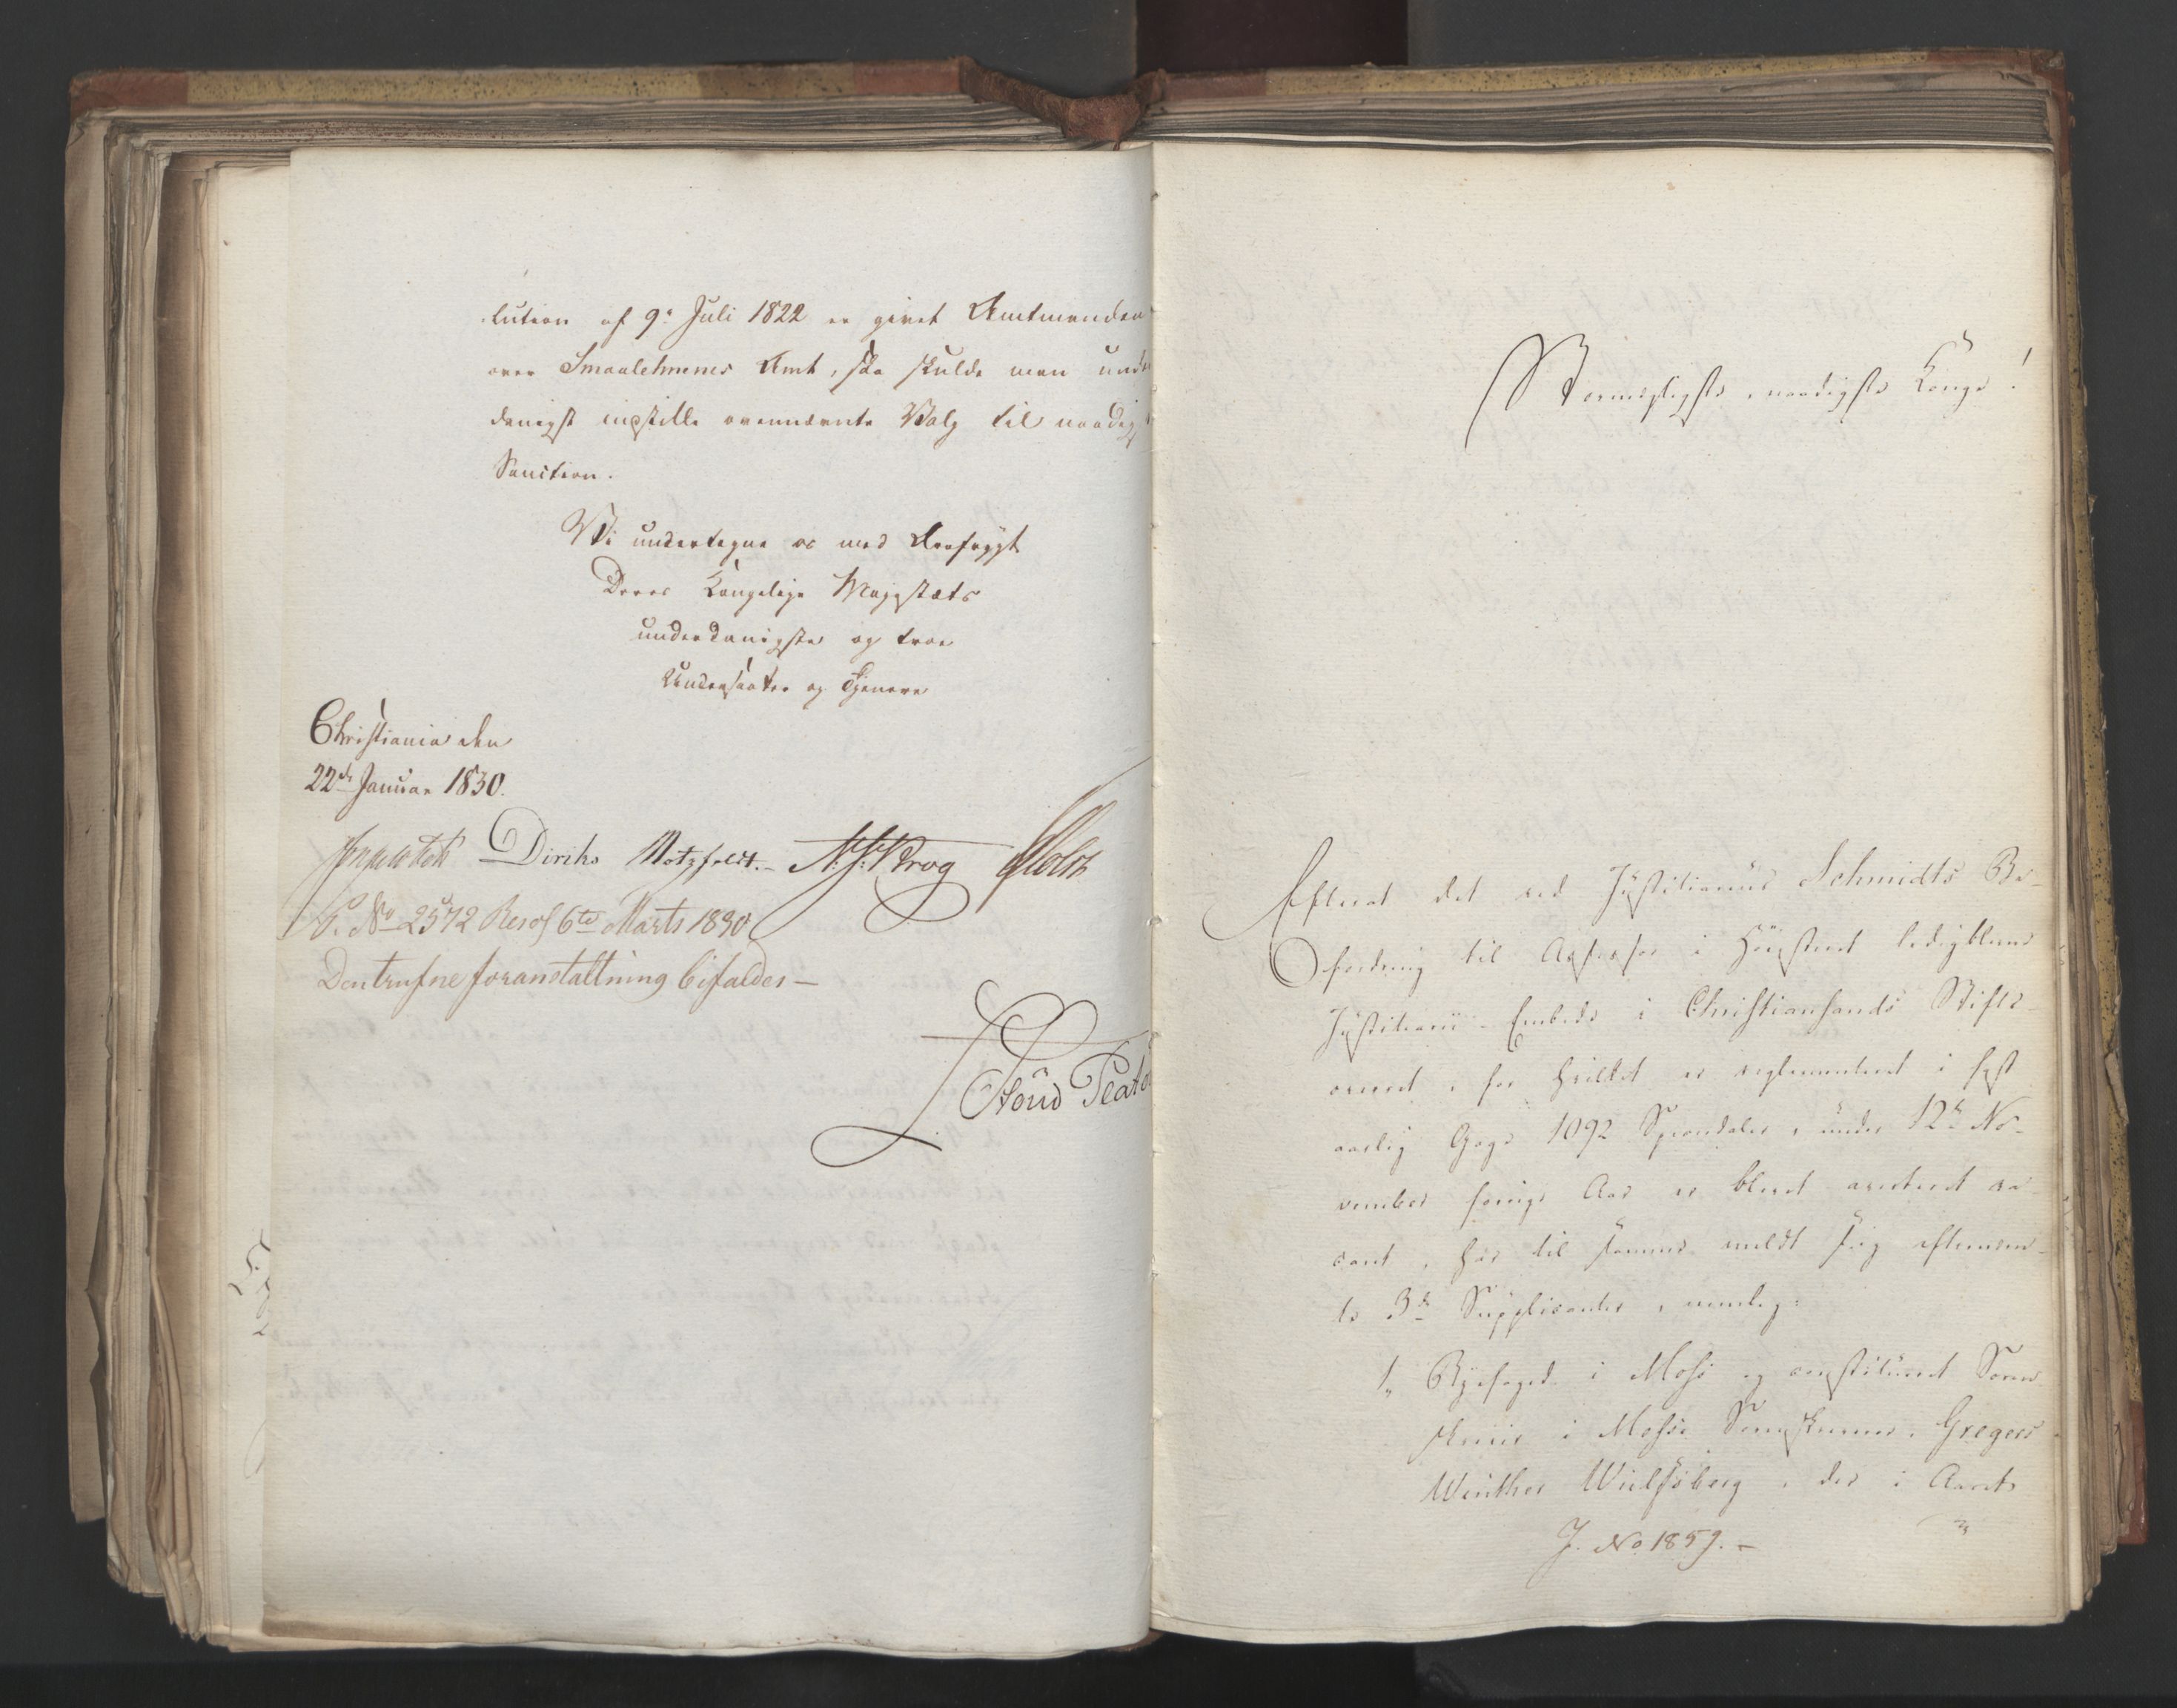 lution af 9de Juli 1822 er givet Amtmanden
over Smaalehnenes Amt, saa skulde man under
danigst indstille ovennævnte Valg til naadigst
Sanction.
Vi undertegne os med Ærefrygt
Deres Kongelige Majestæts
underdanigste og troe
Undersaatter og Tjenere
Christiania den
22de Januar 1830.
Diriks Motzfeldt. Krog Holst
No 2572 Resol 6te Marts 1830
Den trufne foranstaltning bifaldes —
Stormægtigste, naadigste Konge!
Efterat det ved Justitiarius Schmidts Be-
fordring til Assessor i Høiesteret ledigblevne
Justitiarii-Embede i Christiansands Stifts-
overret, for hvilket er reglementeret i fast
aarlig Gage 1092 Speciedaler, under 12te No-
vember forrige Aar er blevet averteret va-
cant, har til samme meldt sig efternævn-
te 3de Supplicanter, nemlig:
1, Byefoged i Moss og constitueret Soren-
skriver i Mosse Sorenskriverie, Gregers
Winther Wulfsberg, der i Aaret
J. No 1859. —